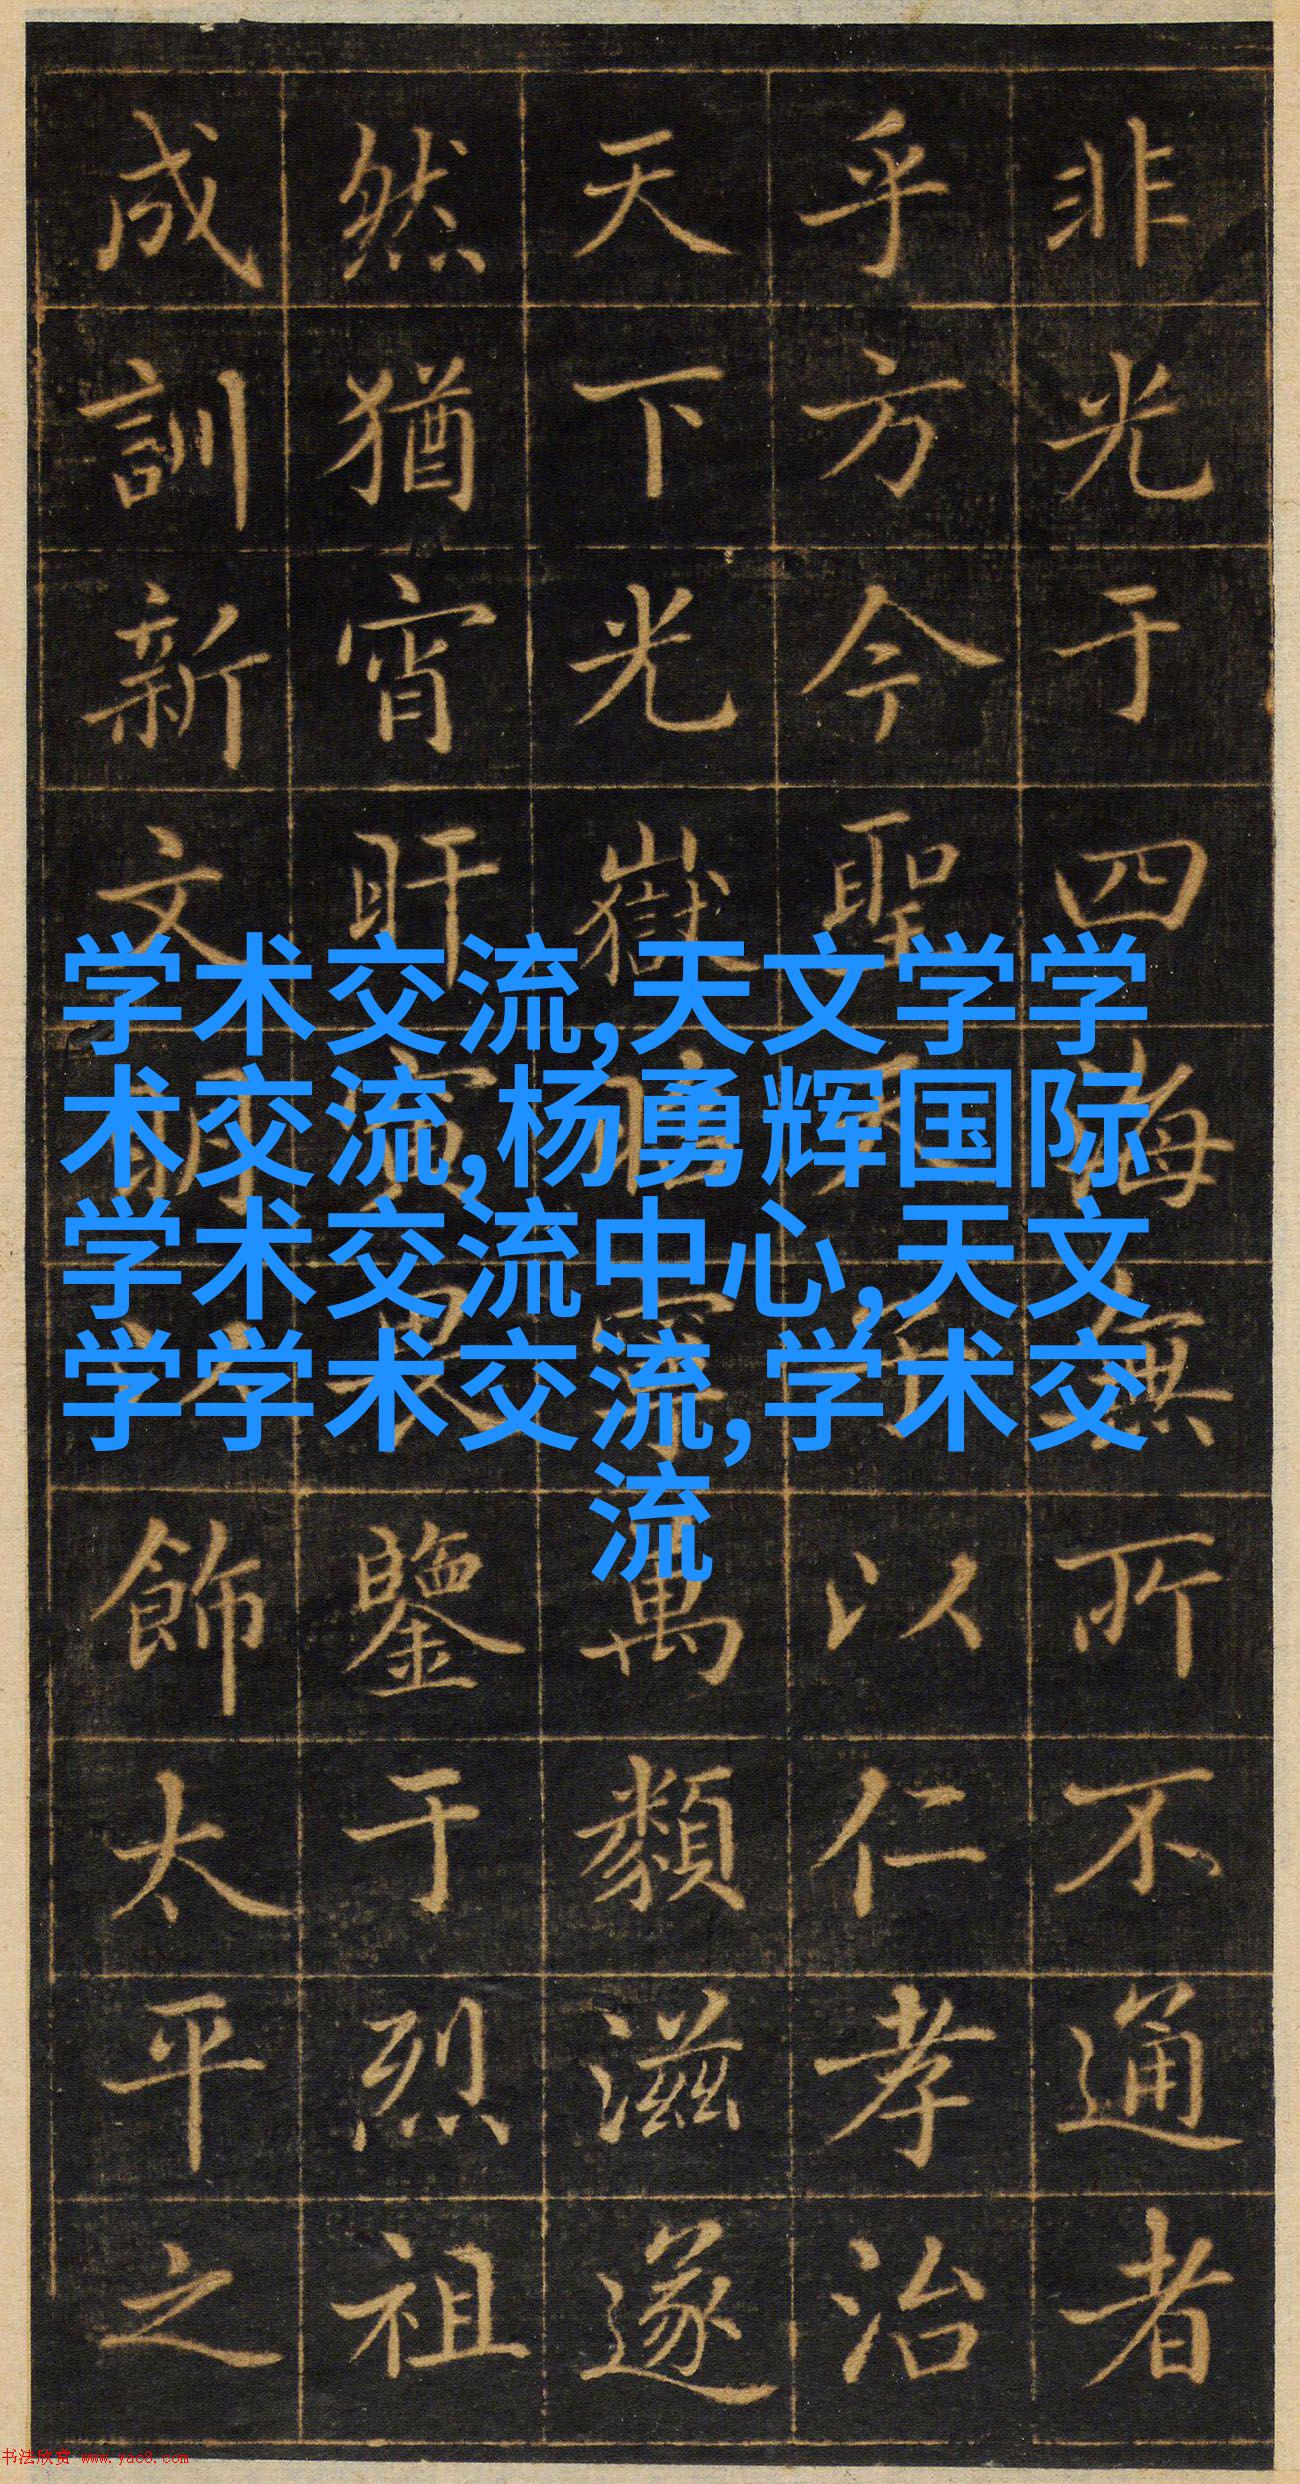 非光于四海無所不通者
乎方今聖天子以仁孝治
天下光嶽寧萬類滋遂
然猶宵旰寅畏鑒于烈祖
成訓新文明以飾太平之
学术交流,天文学学
术交流,杨勇辉国际
学术交流中心,天文
学学术交流,学术交
流
书法欣赏 www.yac8.com